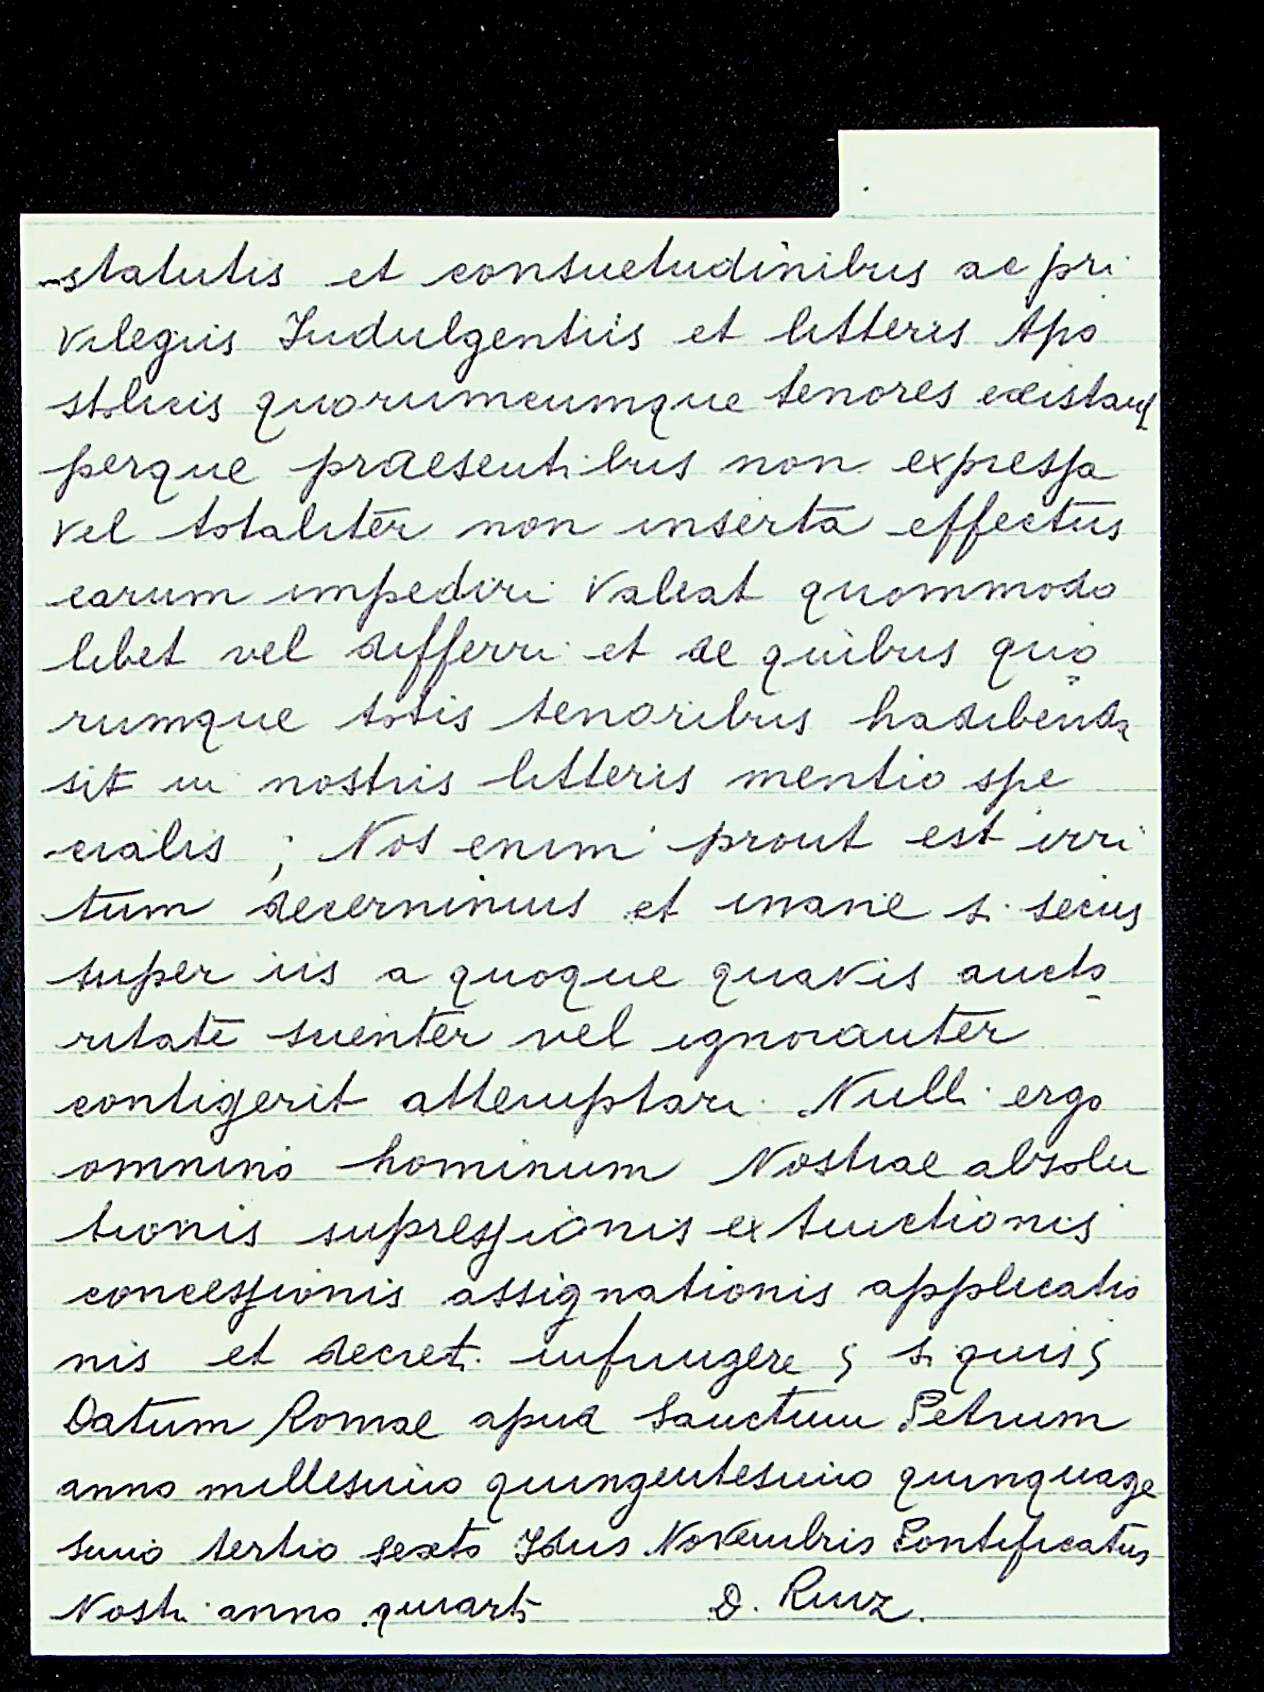 statutis et consuetudinibus ac pri
vilegiis Indulgentiis et litteris Apo
stolicis quorumcumque tenores existant
perque praesentibus non expressa
vel totaliter non inserta effectus
earum impediri valeat quommodo
libet vel differri et de quibus quo
rumque totis tenoribus hadibenda
sit in nostris litteris mentio spe
cialis ; Nos enim prout est irri
tum decernimus et inane si secus
super iis a quoque quavis aucto
ritate scienter vel ignoranter
contigerit attemptari. Nulli ergo
omnino hominum Nostrae absolu
tionis supressionis extinctionis
concessionis assignationis applicatio
nis et decreti infringere ; si quis ;
Datum Romae apud Sanctum Petrum
anno millesimo quingentesimo quinquage
simo tertio sexto Idus Novembris Pontificatus
Nostri anno quarto D. Ruiz.